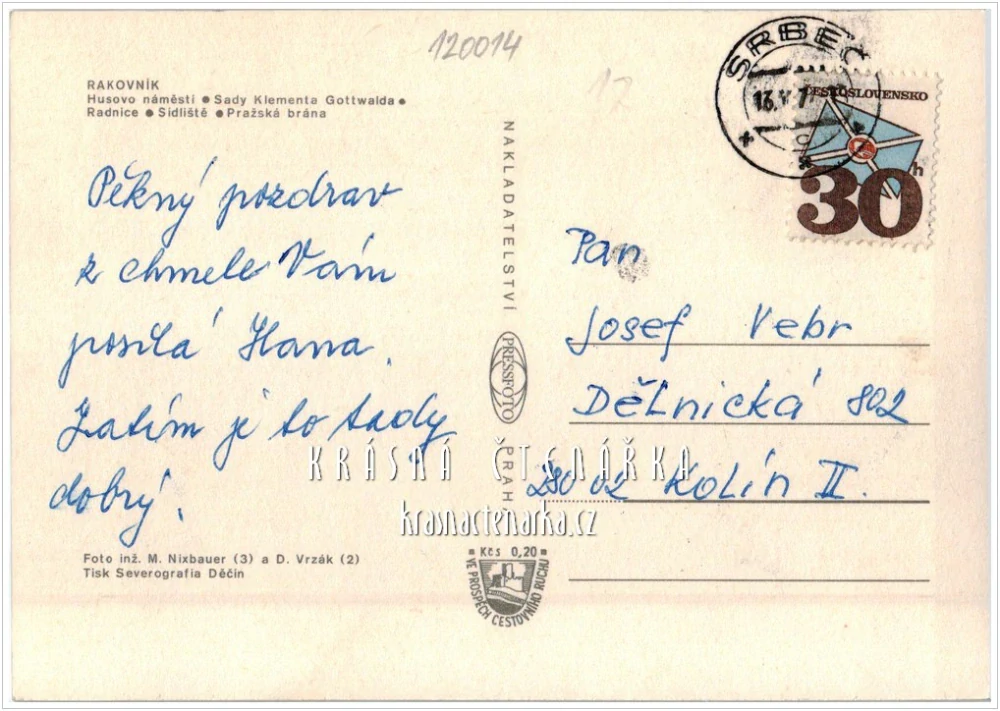 120014
17
RAKOVNÍK
Husovo náměstí ● Sady Klementa Gottwalda ●
Radnice ● Sídliště ● Pražská brána
SRBEČ
ČESKOSLOVENSKO
30h
Pěkný pozdrav
z chmele Vám
posílá Hana.
Zatím je to tady
dobrý.
NAKLADATELSTVÍ PRESSFOTO PRAHA
Pan
Josef Vebr
Dělnická 802
280 02 Kolín II.
KRÁSNÁ ČTENÁŘKA
krasnactenarka.cz
Foto inž. M. Nixbauer (3) a D. Vrzák (2)
Tisk Severografia Děčín
Kčs 0,20
VE PROSPĚCH CESTOVNÍHO RUCHU